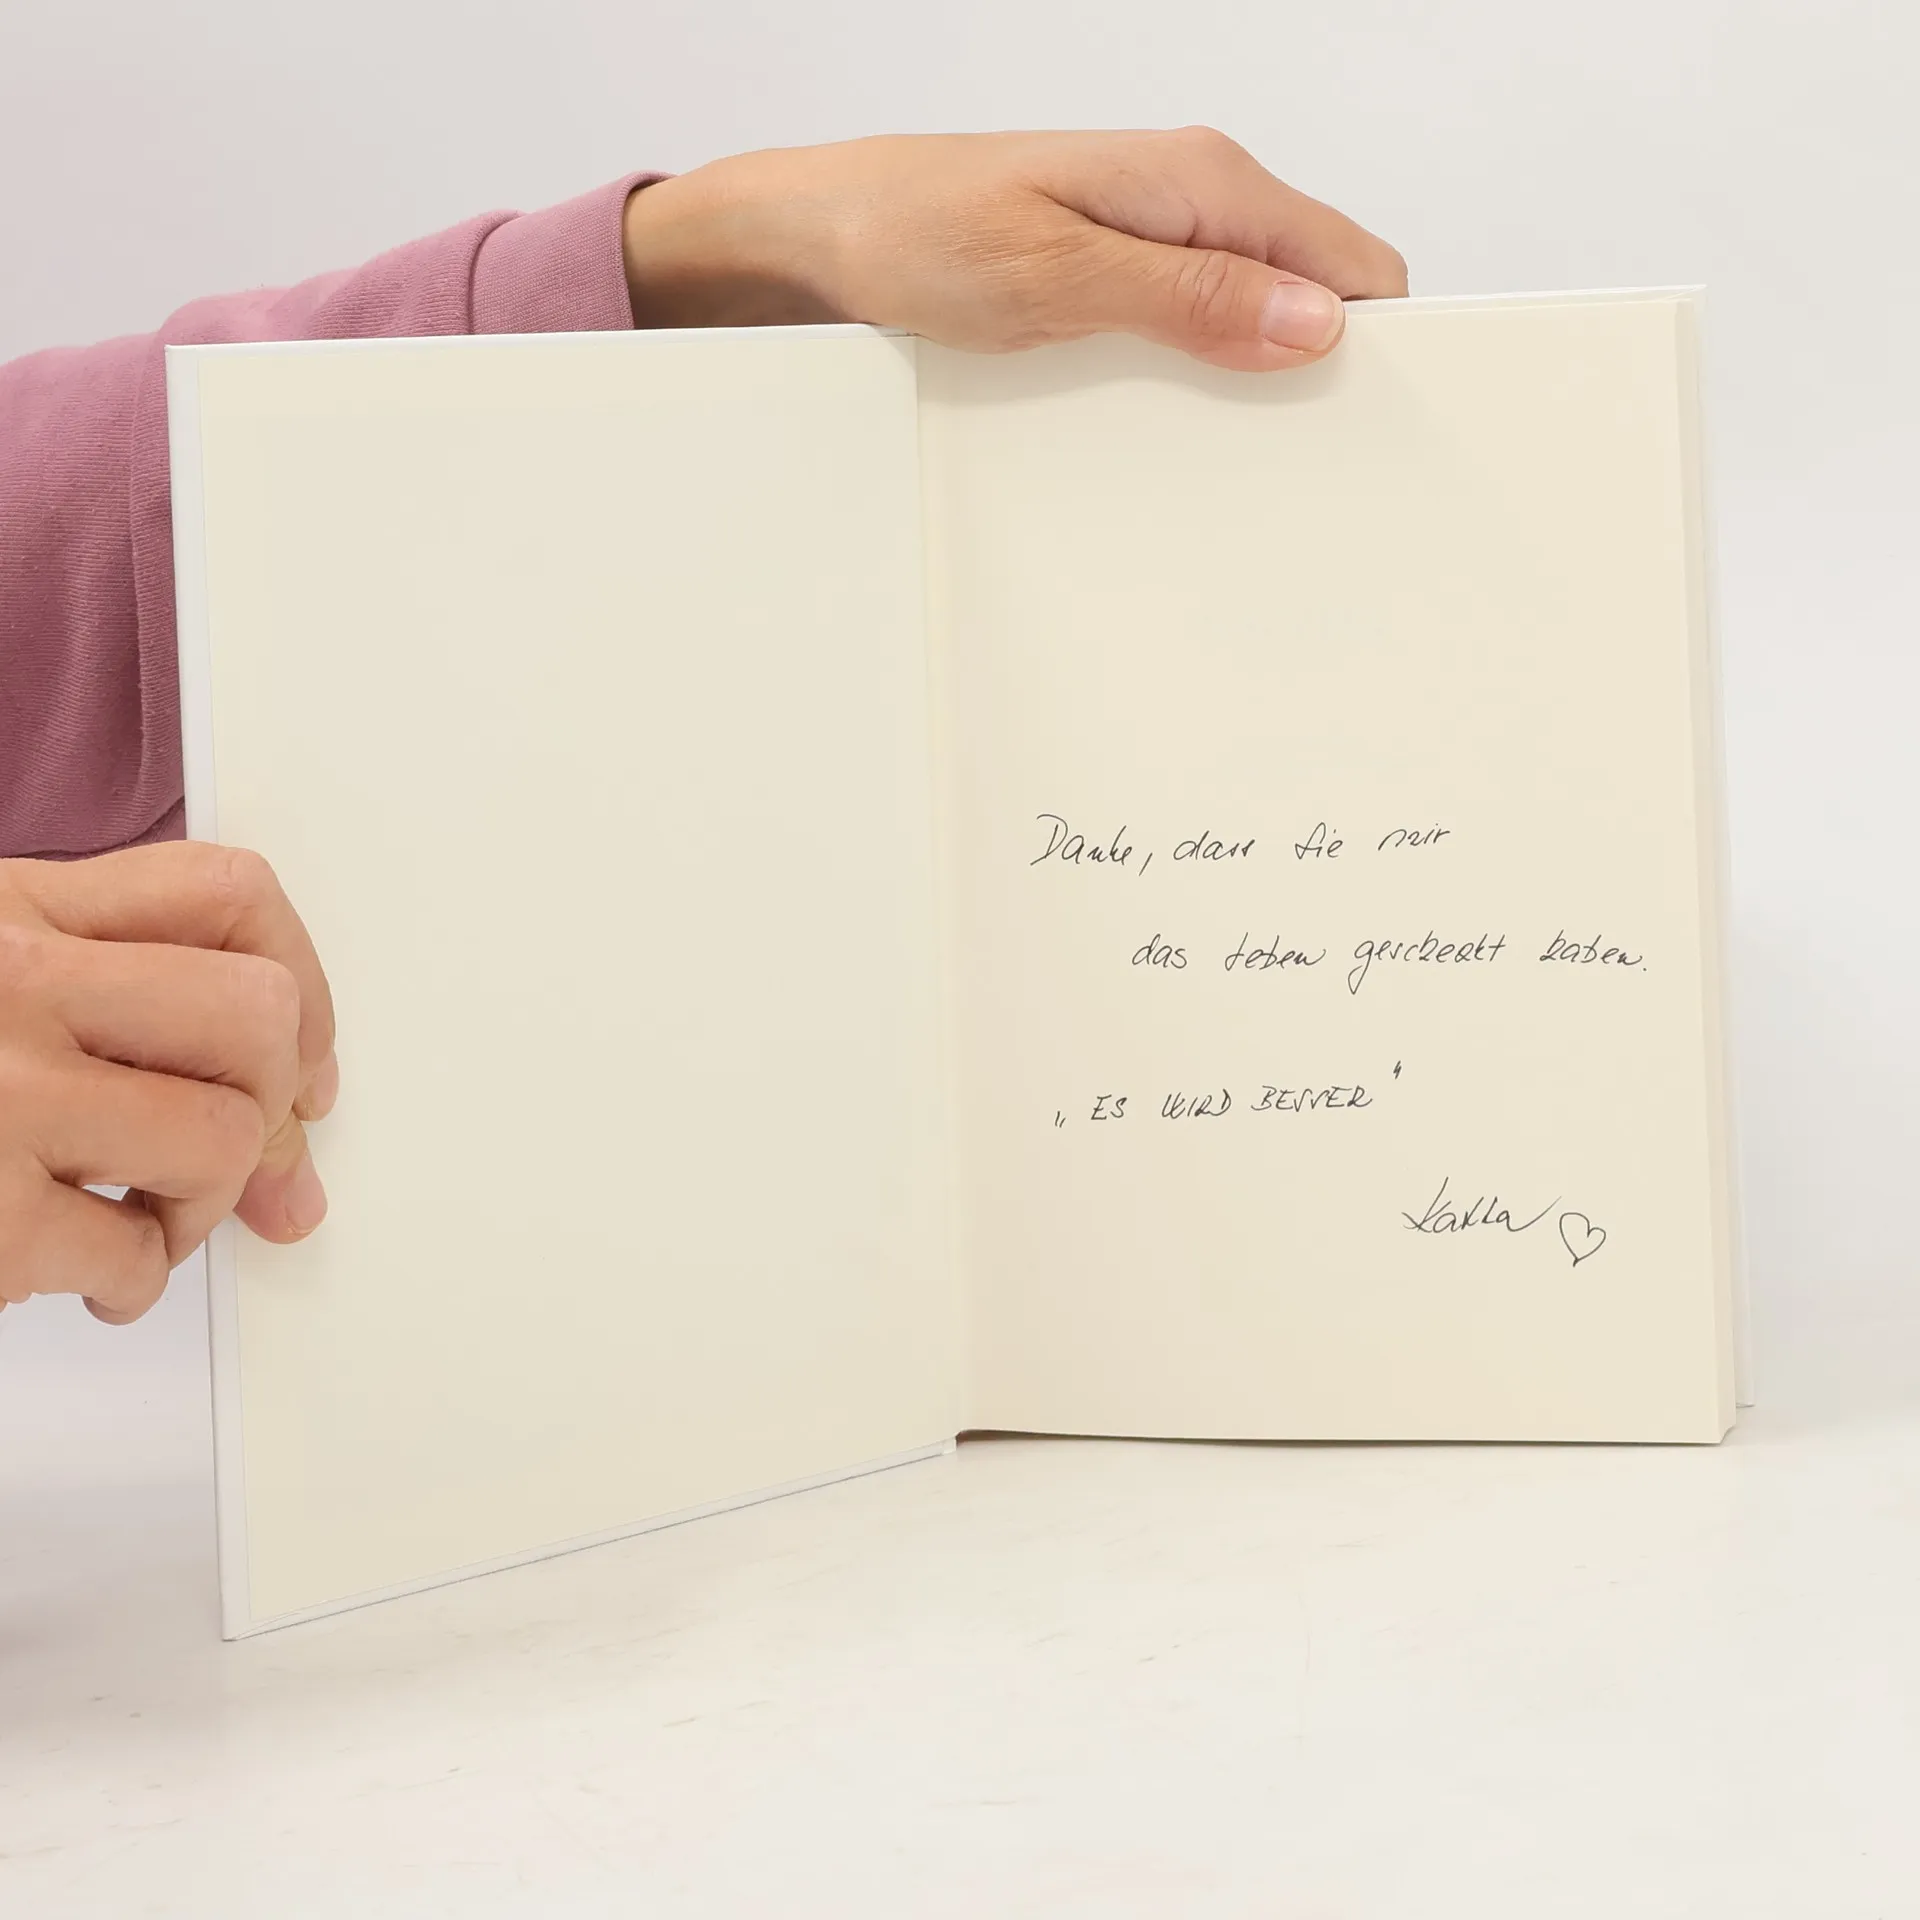 Danke, dass Sie mir
das Leben geschenkt haben.
„ES WIRD BESSER"